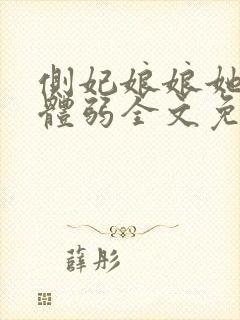 側妃娘娘她
體弱全文免
薛彤